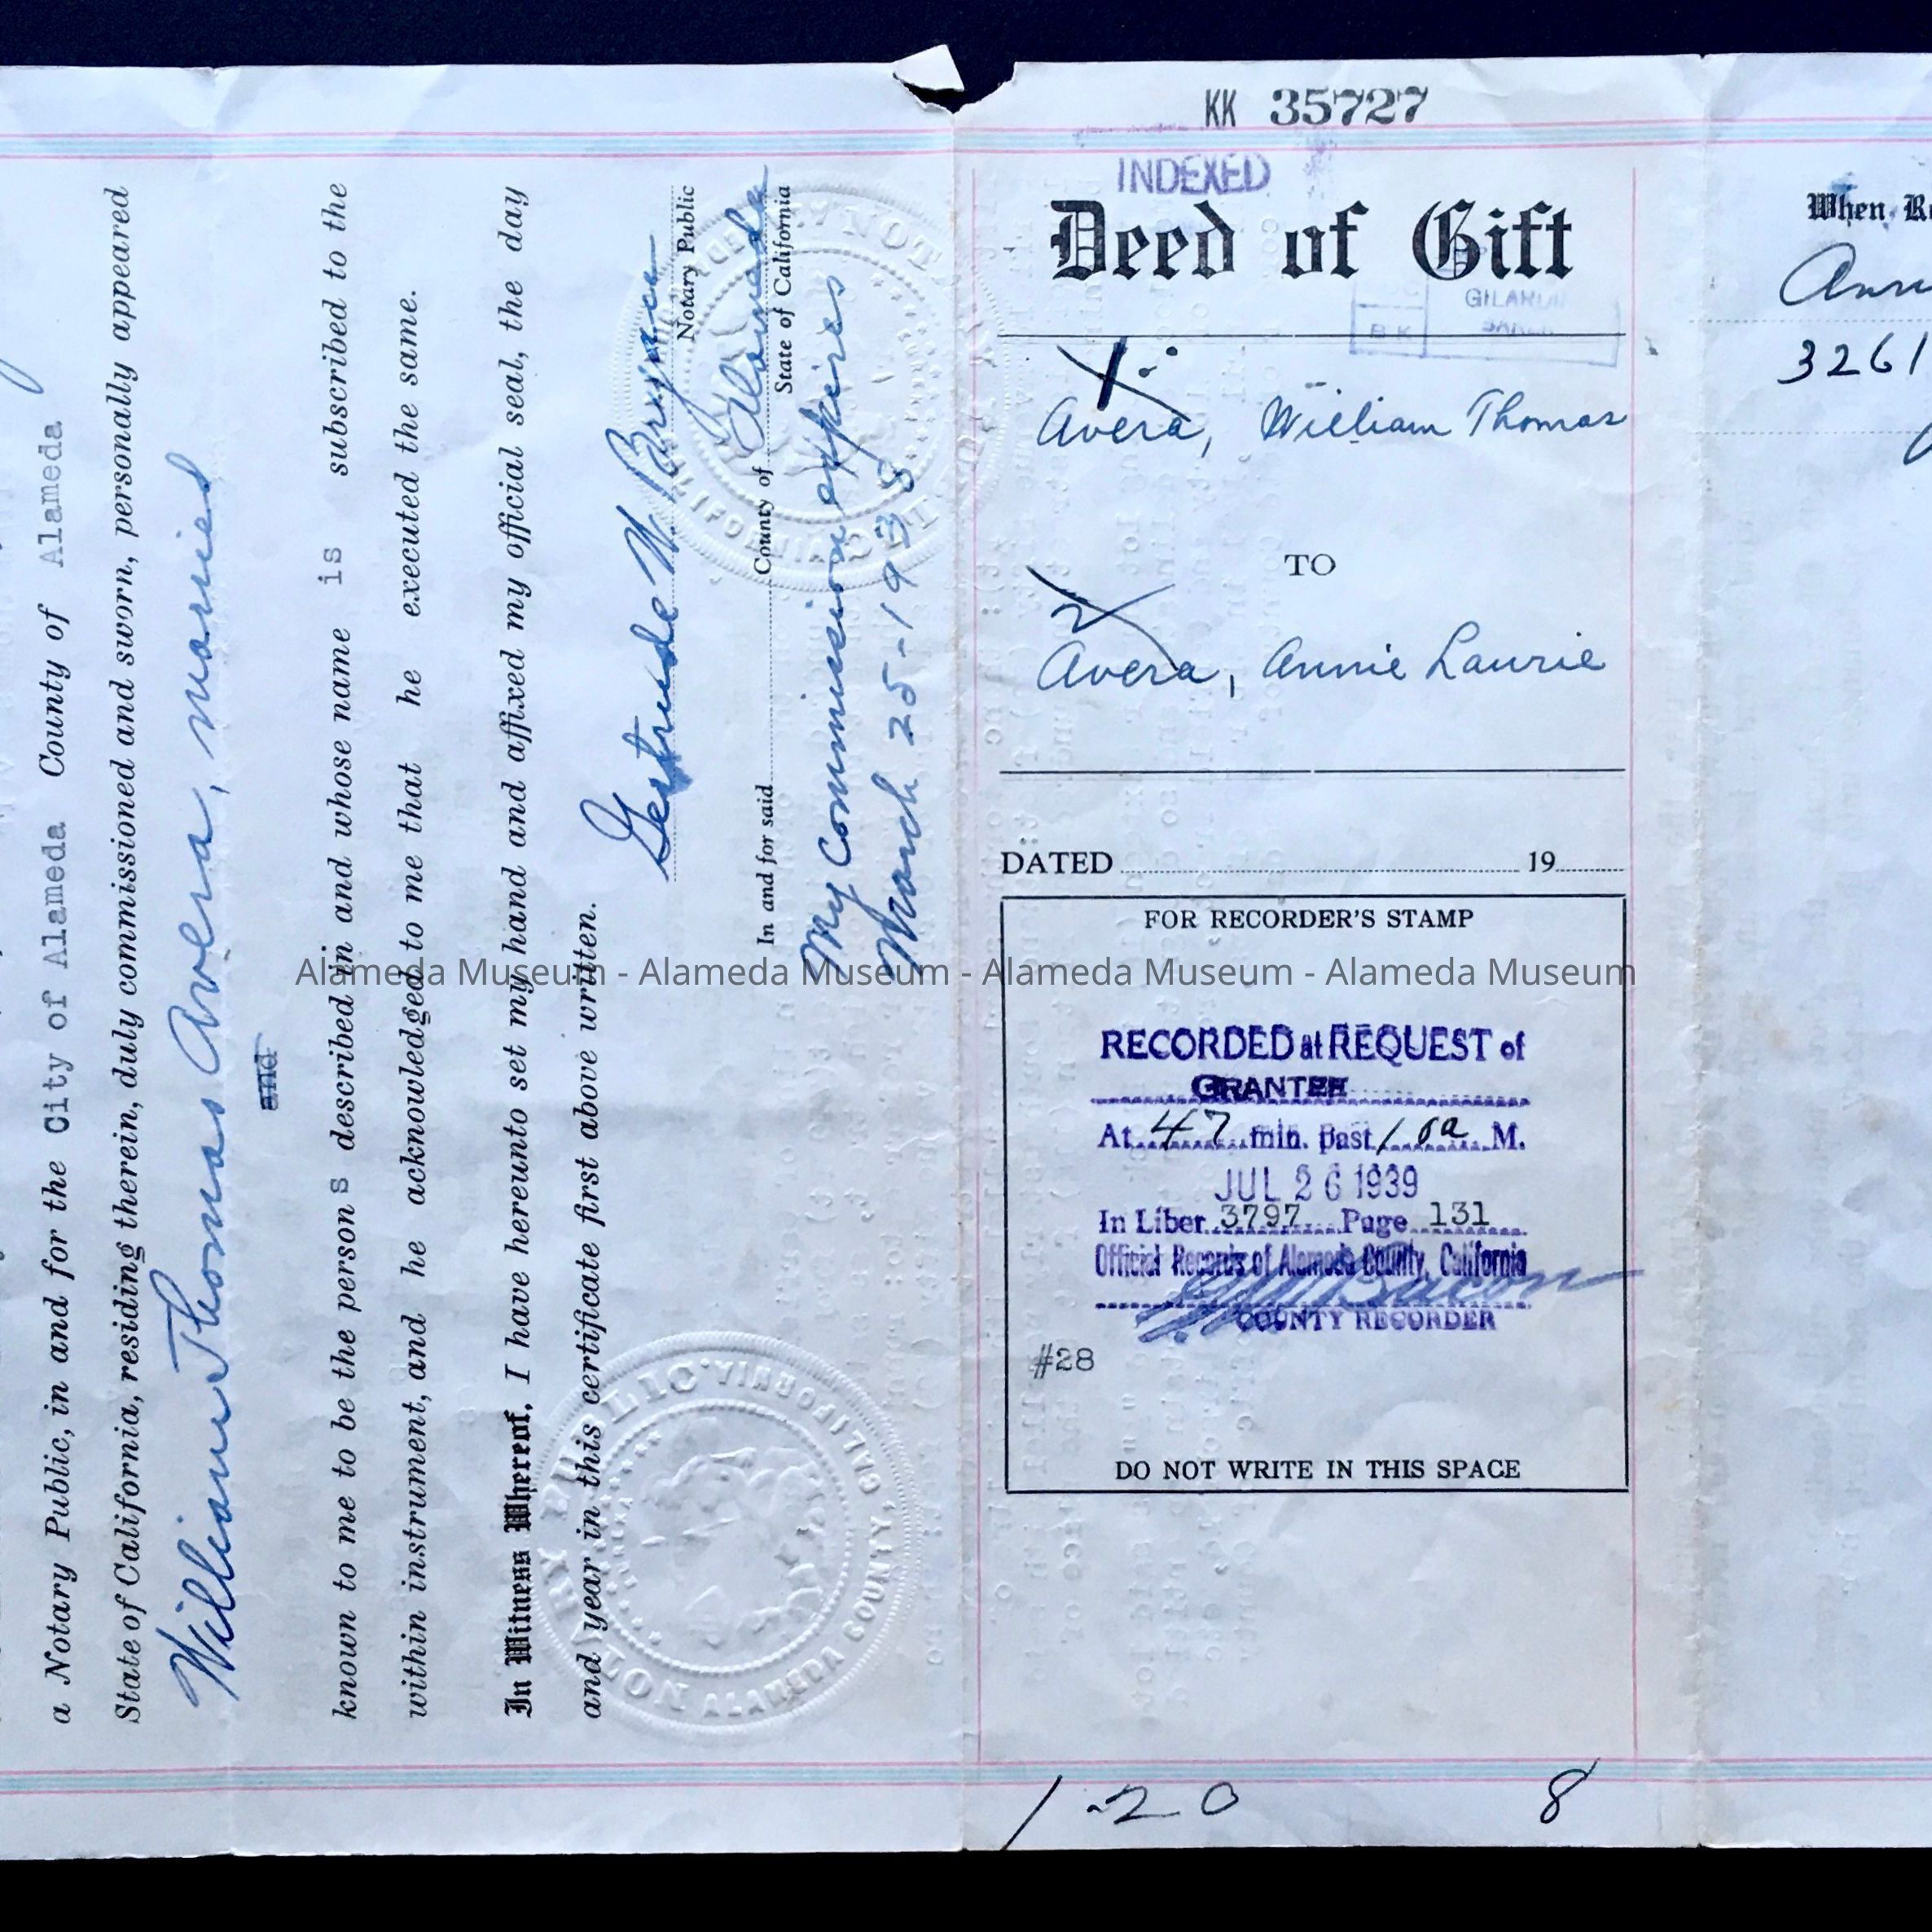 a Notary Public, in and for the City of Alameda County of Alameda
State of California, residing therein, duly commissioned and sworn, personally appeared
William Thomas Avera, married
and
known to me to be the person s described in and whose name is subscribed to the
within instrument, and he acknowledged to me that he executed the same.
In Witness Whereof, I have hereunto set my hand and affixed my official seal, the day
and year in this certificate first above written.
Gertrude W.
Notary Public
In and for said County of Alameda
State of California
My Commission expires
March 25-1938
NOTARY PUBLIC
ALAMEDA COUNTY, CALIFORNIA
KK 35727
INDEXED
Deed of Gift
BK
1
Avera, William Thomas
TO
2
Avera, Annie Laurie
DATED 19
FOR RECORDER'S STAMP
Alameda Museum - Alameda Museum - Alameda Museum - Alameda Museum
RECORDED at REQUEST of
GRANTEE
At 47 min. past 10a M.
JUL 26 1939
In Liber 3797 Page 131
Official Records of Alameda County, California
Bacon
COUNTY RECORDER
#28
DO NOT WRITE IN THIS SPACE
1-20 8
When
3261